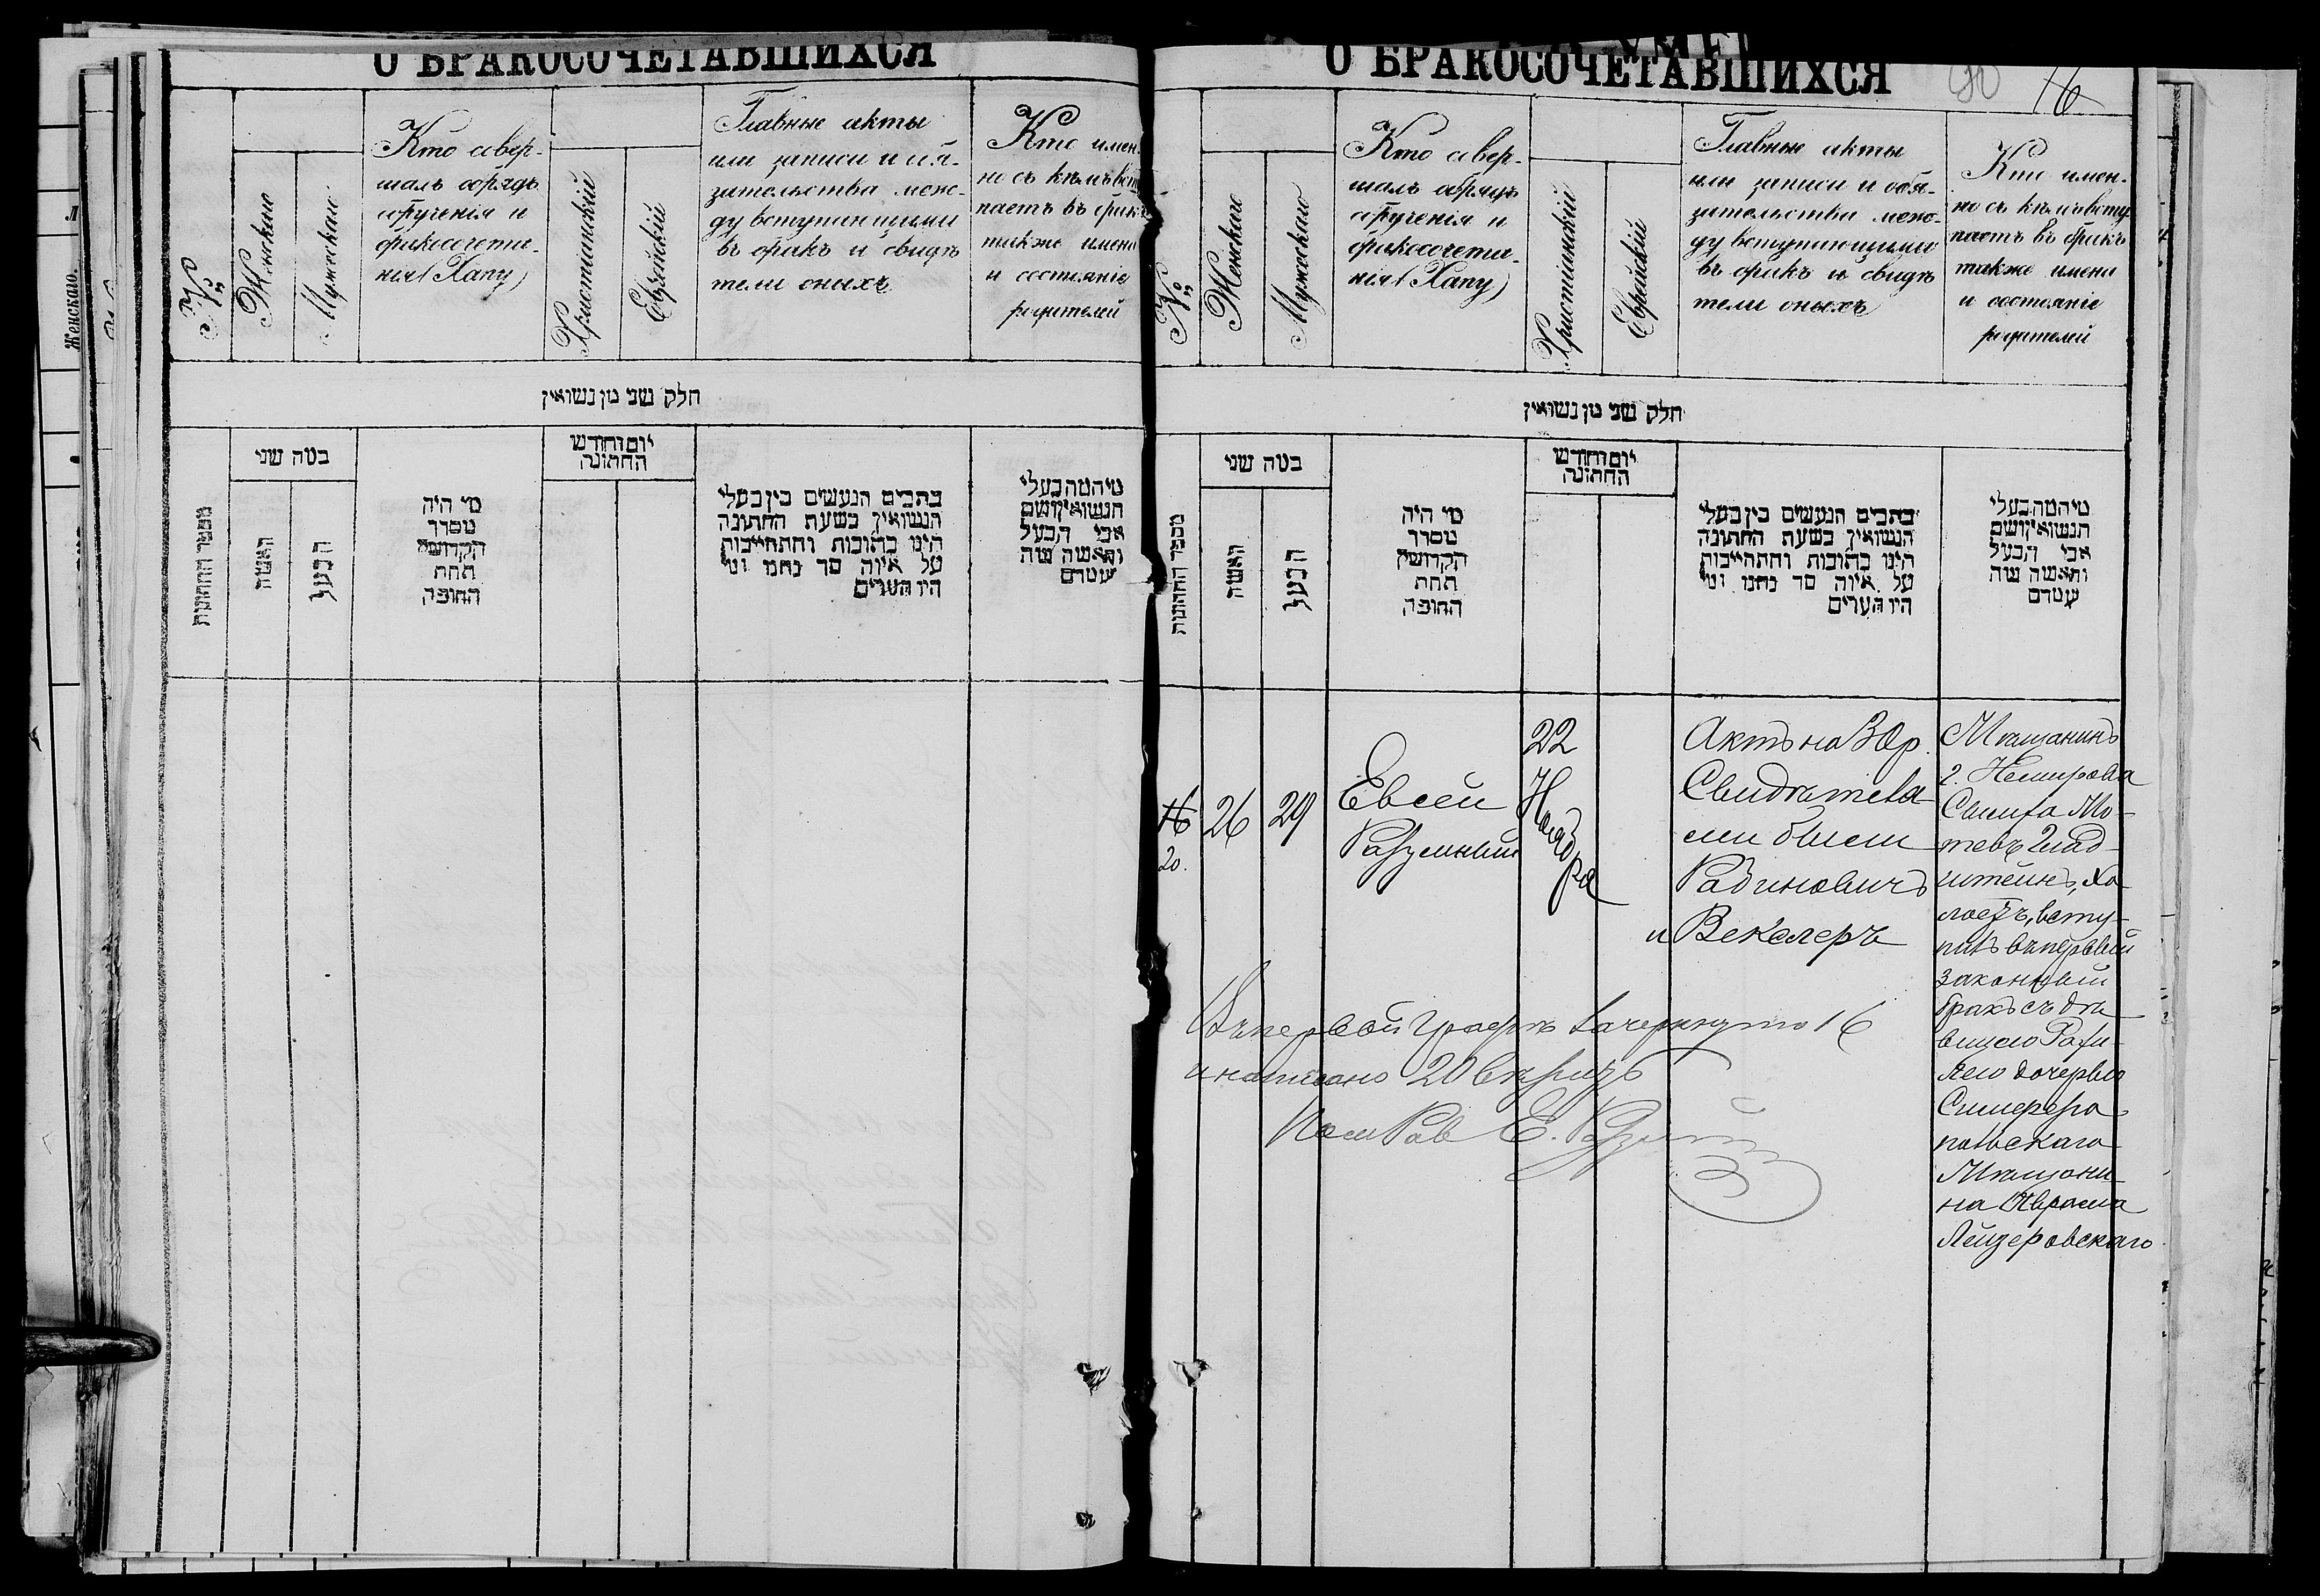 О БРАКОСОЧЕТАВШИХСЯ
№
Женскаго
Мужскаго
Кто совер-
шалъ обрядъ
обрученія и
бракосочета-
нія (Хапу)
Христіанскій
Еврейскій
Главные акты
или записи и обя-
зательства меж-
ду вступающими
въ бракъ и свидѣ
тели оныхъ
Кто имен-
но съ кѣмъ всту
паетъ въ бракъ
также имена
и состояніе
родителей
חלק שני מן נשואין
מספר החתונות
כמה שני
האשה
הבעל
מי היה
מסדר
הקדושין
תחת
החופה
יום וחודש
החתונה
כתבים הנעשים בין בעלי
הנשואין בשעת החתונה
היינו כתובות והתחייבות
על איזה סך נתנו ומי
היו העדים
מי המה בעלי
הנשואין ושם
אבי הבעל
והאשה ומה
שמם
Женскаго.
О БРАКОСОЧЕТАВШИХСЯ
16
№
Женскаго
Мужскаго
Кто совер-
шалъ обрядъ
обрученія и
бракосочета-
нія (Хапу)
Христіанскій
Еврейскій
Главные акты
или записи и обя-
зательства меж-
ду вступающими
въ бракъ и свидѣ
тели оныхъ
Кто имен-
но съ кѣмъ всту
паетъ въ бракъ
также имена
и состояніе
родителей
חלק שני מן נשואין
מספר החתונות
כמה שני
האשה
הבעל
מי היה
מסדר
הקדושין
תחת
החופה
יום וחודש
החתונה
כתבים הנעשים בין בעלי
הנשואין בשעת החתונה
היינו כתובות והתחייבות
על איזה סך נתנו ומי
היו העדים
מי המה בעלי
הנשואין ושם
אבי הבעל
והאשה ומה
שמם
16
20.
26
29
Евсей
Разумный
22
Ноября
Актъ на 30 р.
Свидѣтеля-
ми были
Рабиновичъ
и Векслеръ
Мѣщанинъ
г. Немирова
Мо-
тевъ
штейнъ, хо-
лостъ, всту-
пилъ въ первый
законный
бракъ съ дѣ
вицею Рахи-
лею дочерью
Симферо-
польскаго
Мѣщани-
на Аврама
Лейзеровскаго
Въ первой графѣ зачеркнуто 16
и написано 20 вѣрить
Пом Рав Е. Разумный